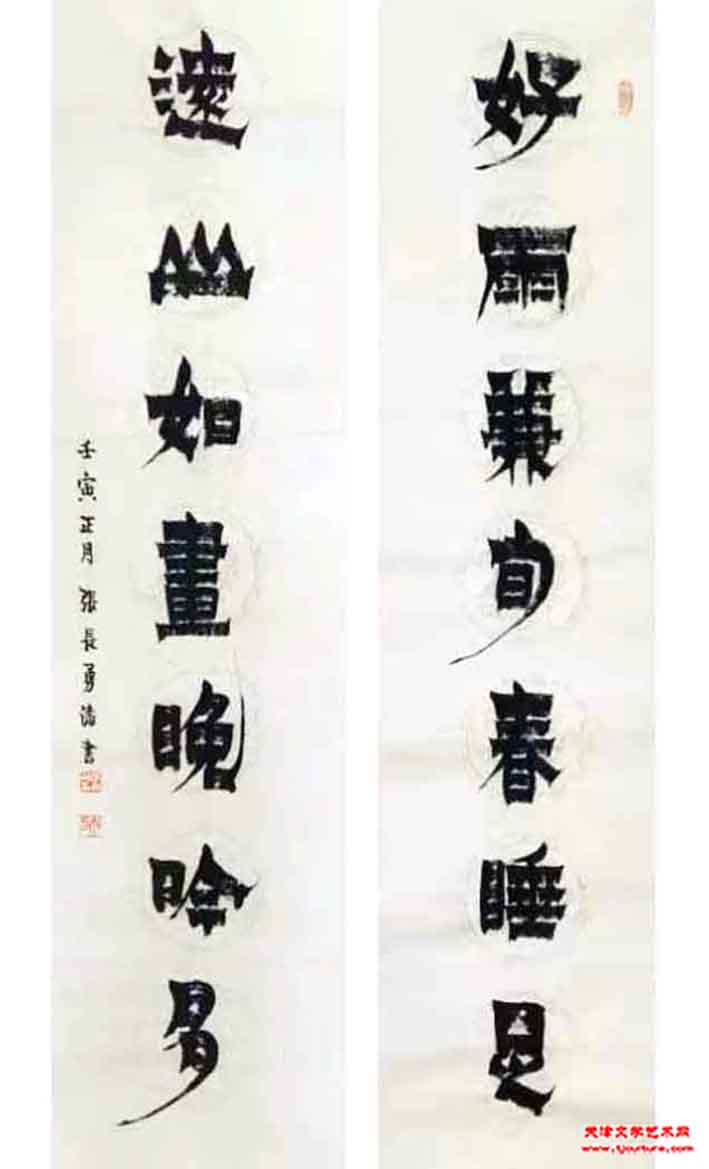 好雨兼旬春睡足
遠山如畫晚吟多
壬寅正月 張長勇 書
天津文学艺术网
www.tjculture.com